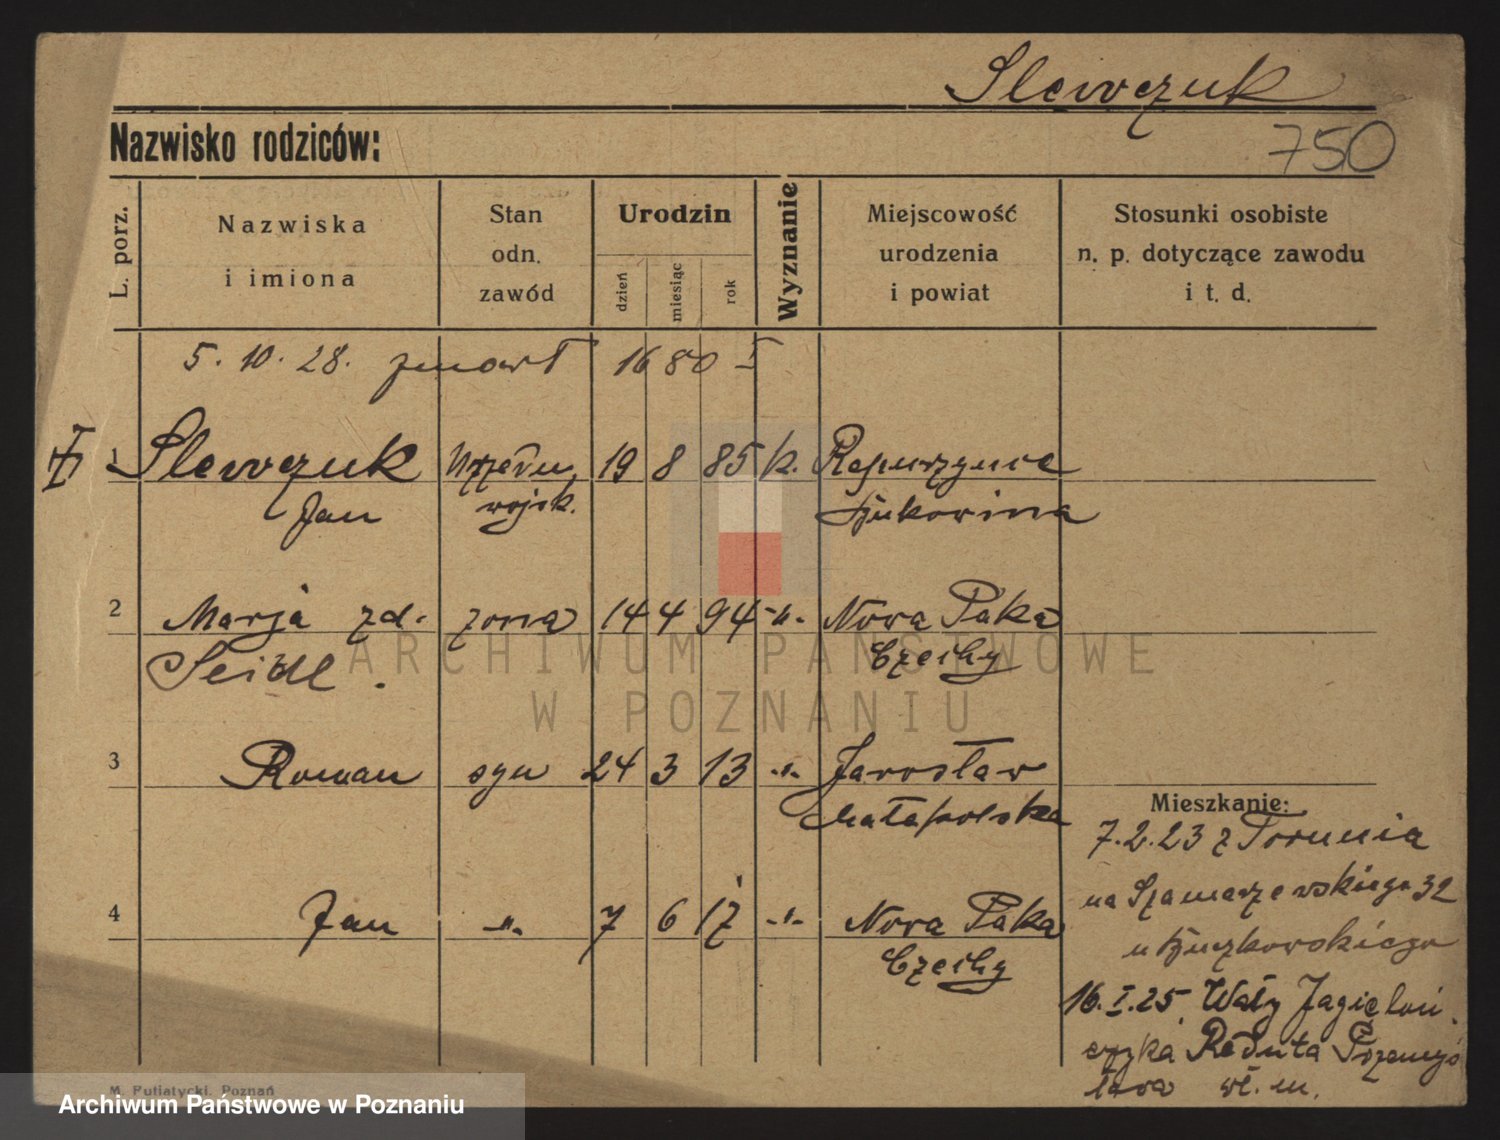 Slewczuk
750
Nazwisko rodziców:
L. porz.
Nazwiska
i imiona
Stan
odn.
zawód
Urodzin
dzień
miesiąc
rok
Wyznanie
Miejscowość
urodzenia
i powiat
Stosunki osobiste
n. p. dotyczące zawodu
i t. d.
5. 10. 28. zmarł 1680 I
1 Slewczuk 19 8 85 k.
Jan wojsk. Bukowina
2 Marja zd. żona 14 4 94 -"- Nova Paka
Seidl. Czechy
3 Roman syn 24 3 13 -"- Jarosław
Małopolska
4 Jan -"- 7 6 17 -"- Nova Paka
Czechy
Mieszkanie:
7.2.23 z Torunia
na Szamarzewskiego 32
u Buczkowskiego
16.I.25 Wały Jagielloń
Reduta Przemys
ława wł. m.
ARCHIWUM PAŃSTWOWE
W POZNANIU
M. Putiatycki, Poznań
Archiwum Państwowe w Poznaniu